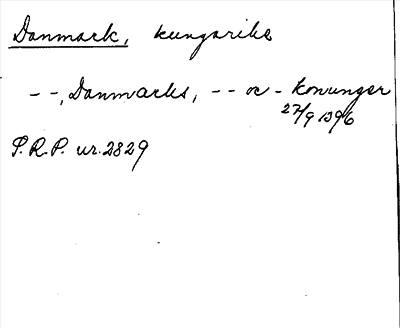 Danmark, kungarike
- -, Danmarks, - - oc - konunger
27/9 1396
S.R.P. nr. 2829